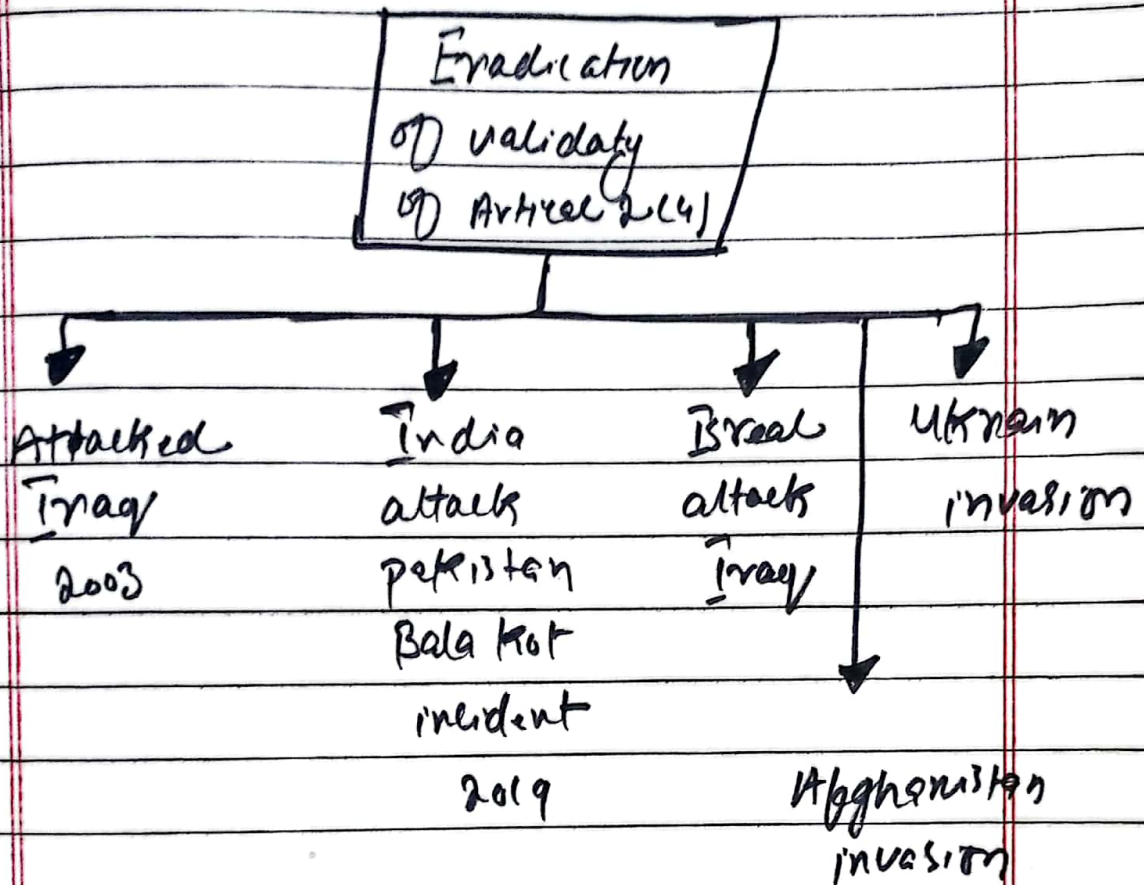 Eradication
of validaty
of Artical 2(4)
Attacked
Iraq
2003
India
attack
pakistan
Bala kot
incident
2019
Isreal
attack
Iraq
Ukrain
invasion
Afghanistan
invasion